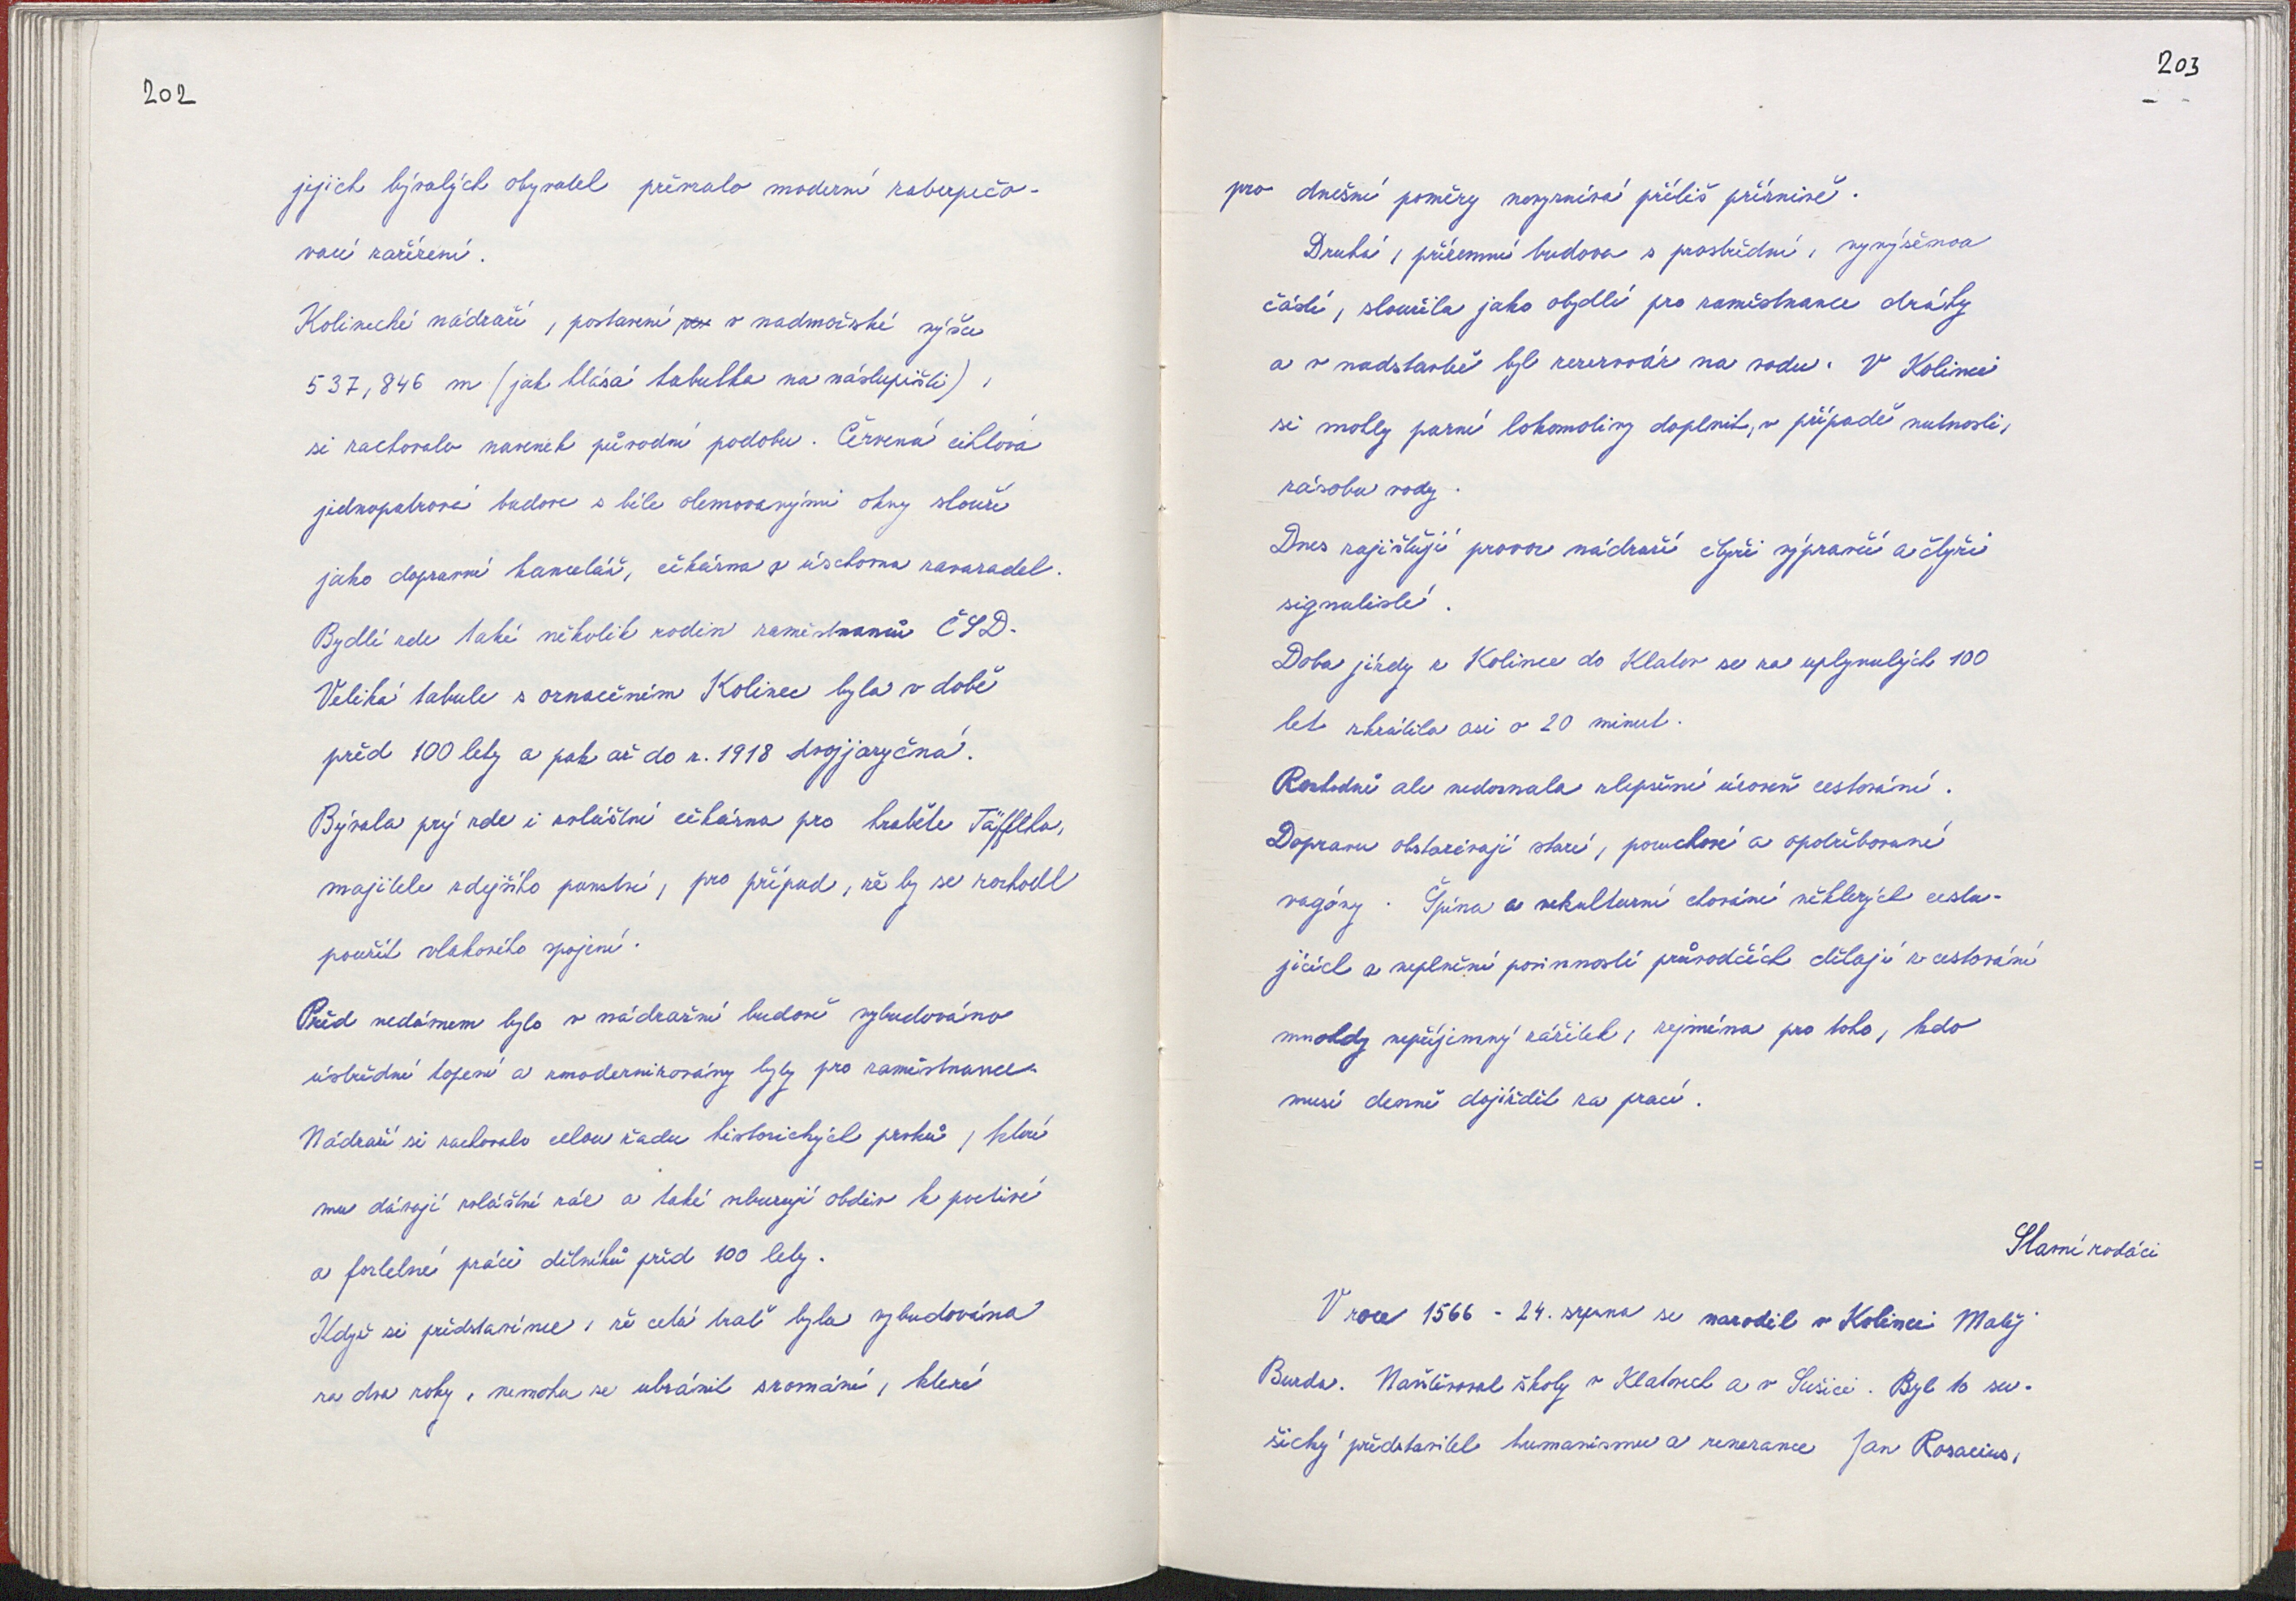 202
jejich bývalých obyvatel převzalo moderní zabezpečo-
vací zařízení.
Kolinecké nádraží, postavené v nadmořské výšce
537,846 m (jak hlásá tabulka na nástupišti),
si zachovalo navenek původní podobu. Červená cihlová
jednopatrová budova s bíle olemovanými okny slouží
jako dopravní kancelář, čekárna a úschovna zavazadel.
Bydlí zde také několik rodin zaměstnanců ČSD.
Veliká tabule s označením Kolinec byla v době
před 100 lety a pak až do r. 1918 dvojjazyčná.
Bývala prý zde i zvláštní čekárna pro hraběte Täffeho,
majitele zdejšího panství, pro případ, že by se rozhodl
použít vlakového spojení.
Před nedávnem bylo v nádražní budově vybudováno
ústřední topení a zmodernizovány byty pro zaměstnance.
Nádraží si zachovalo celou řadu historických prvků, které
mu dávají zvláštní ráz a také vzbuzují obdiv k poctivé
a fortelné práci dělníků před 100 lety.
Když si představíme, že celá trať byla vybudována
za dva roky, nemohu se ubránit srovnání, které
203
pro dnešní poměry nevyznívá příliš příznivě.
Druhá, přízemní budova s prostřední, vyvýšenou
částí, sloužila jako obydlí pro zaměstnance dráhy
a v nadstavbě byl rezervoár na vodu. V Kolinci
si mohly parní lokomotivy doplnit, v případě nutnosti,
zásobu vody.
Dnes zajišťují provoz nádraží čtyři výpravčí a čtyři
signalisté.
Doba jízdy z Kolince do Klatov se za uplynulých 100
let zkrátila asi o 20 minut.
Rozhodně ale nedoznala zlepšení úroveň cestování.
Dopravu obstarávají staré, poruchové a opotřebované
vagóny. Špína a nekulturní chování některých cestu-
jících a neplnění povinností průvodčích dělají z cestování
mnohdy nepříjemný zážitek, zejména pro toho, kdo
musí denně dojíždět za prací.
Slavní rodáci
V roce 1566 - 24. srpna se narodil v Kolinci Matěj
Burda. Navštěvoval školy v Klatovech a v Sušici. Byl to su-
šický představitel humanismu a renezance Jan Rosacius,